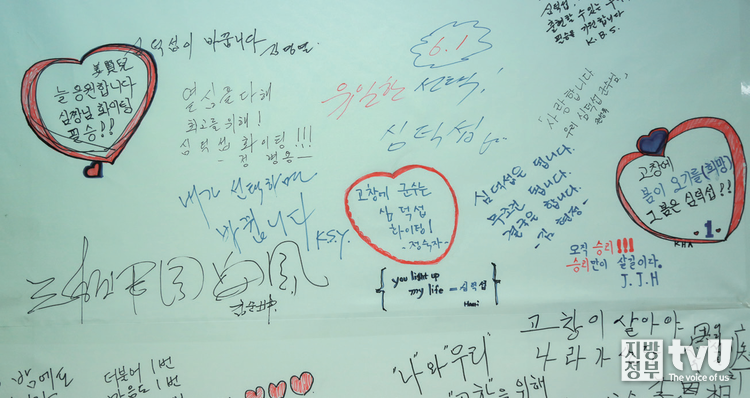 심덕섭이 바꿉니다
늘 응원합니다
심장님 화이팅
필승!!
열심을 다해
최고를 위해!
심덕섭 화이팅!!!
- 정병용 -
6.1
유일한 선택!
심덕섭
춘천할 수 있는
K.B.S.
사랑합니다
우리 심덕섭 군수님
내가 선택하면
바뀝니다
K.S.Y.
고창에 군수는
심덕섭
하이팅!
-정숙자-
심덕섭은 됩니다.
무조건 됩니다.
결국은 합니다.
고창에
봄이 오기를(희망)
그봄은 심덕섭!!
1
KHA
오직 승리!!!
승리만이 살길이다.
J.J.H
you light up
my life = 심덕섭
더불어 1번
마음도 1번
"나"와 "우리"
"고창"을 위해
고창이 살아야
나라가
지방
정부
tvU
The voice of us